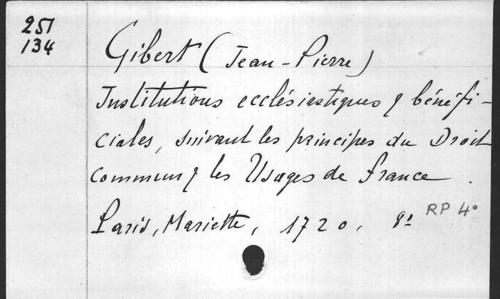 251
134
Gibert (Jean-Pierre)
Institutions ecclésiastiques & bénéfi-
ciales, suivant les principes du Droit
commun & les Usages de France.
Paris, Mariette, 1720.
RP 4°